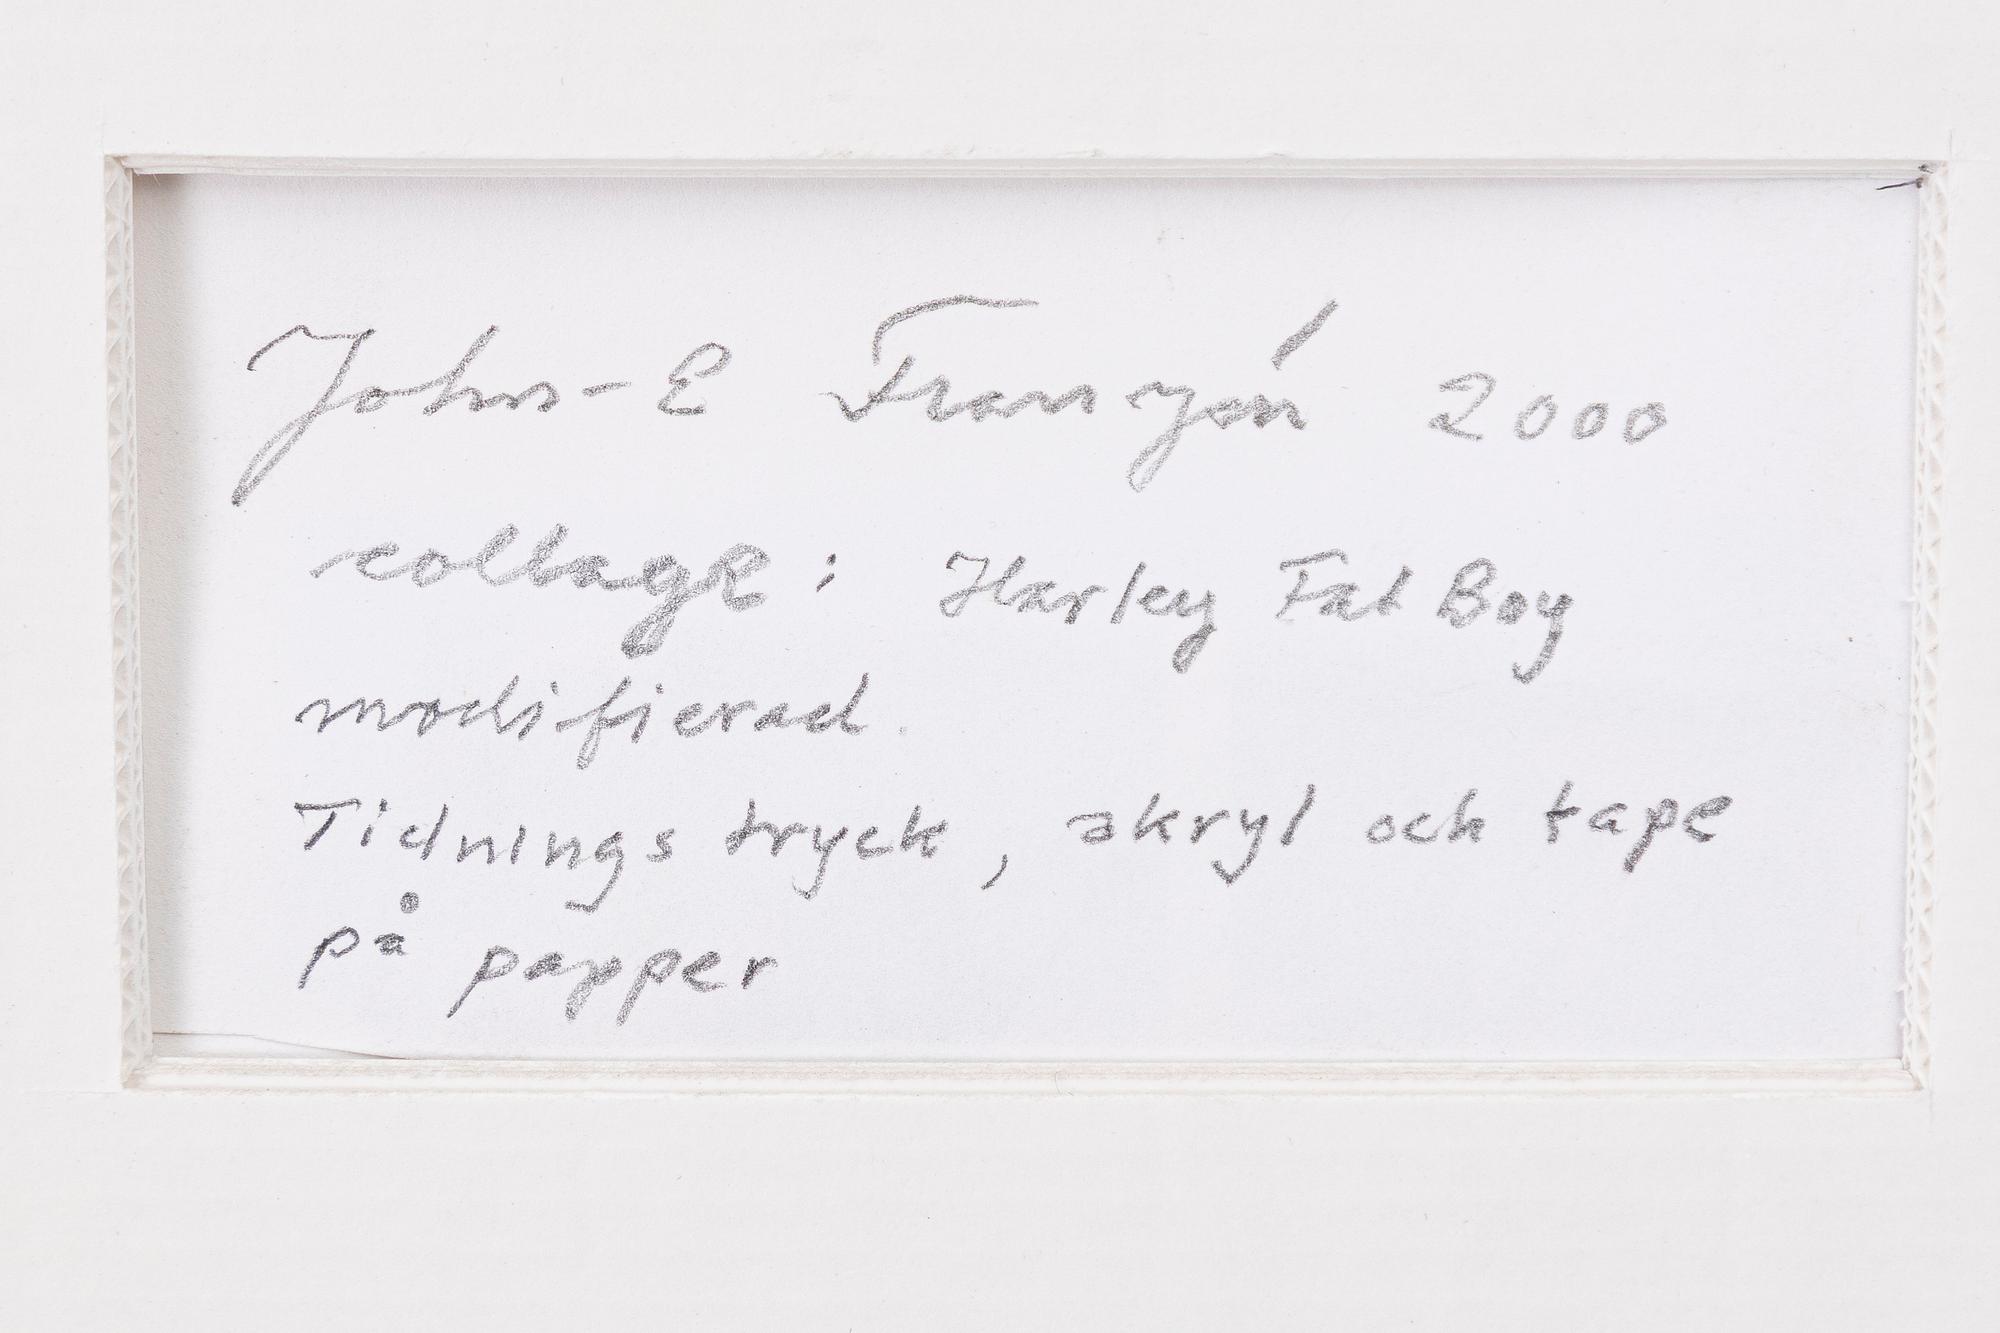 John-E Franzén 2000
collage: Harley Fat Boy
modifierad.
Tidnings tryck, akryl och tape
på papper